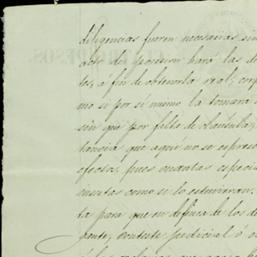 diligencias fueren necesarias sin
acto de posesion hará las de
to, á fin de obtenerla real, corp
mo si por si mismo la tomara
sin que por falta de cláusula,
tancia que aquí no se exprese
efectos, pues cuantas especia
cuertas como si lo estuvieran.
ta para que en defensa de los de
pante, conteste judicial ó